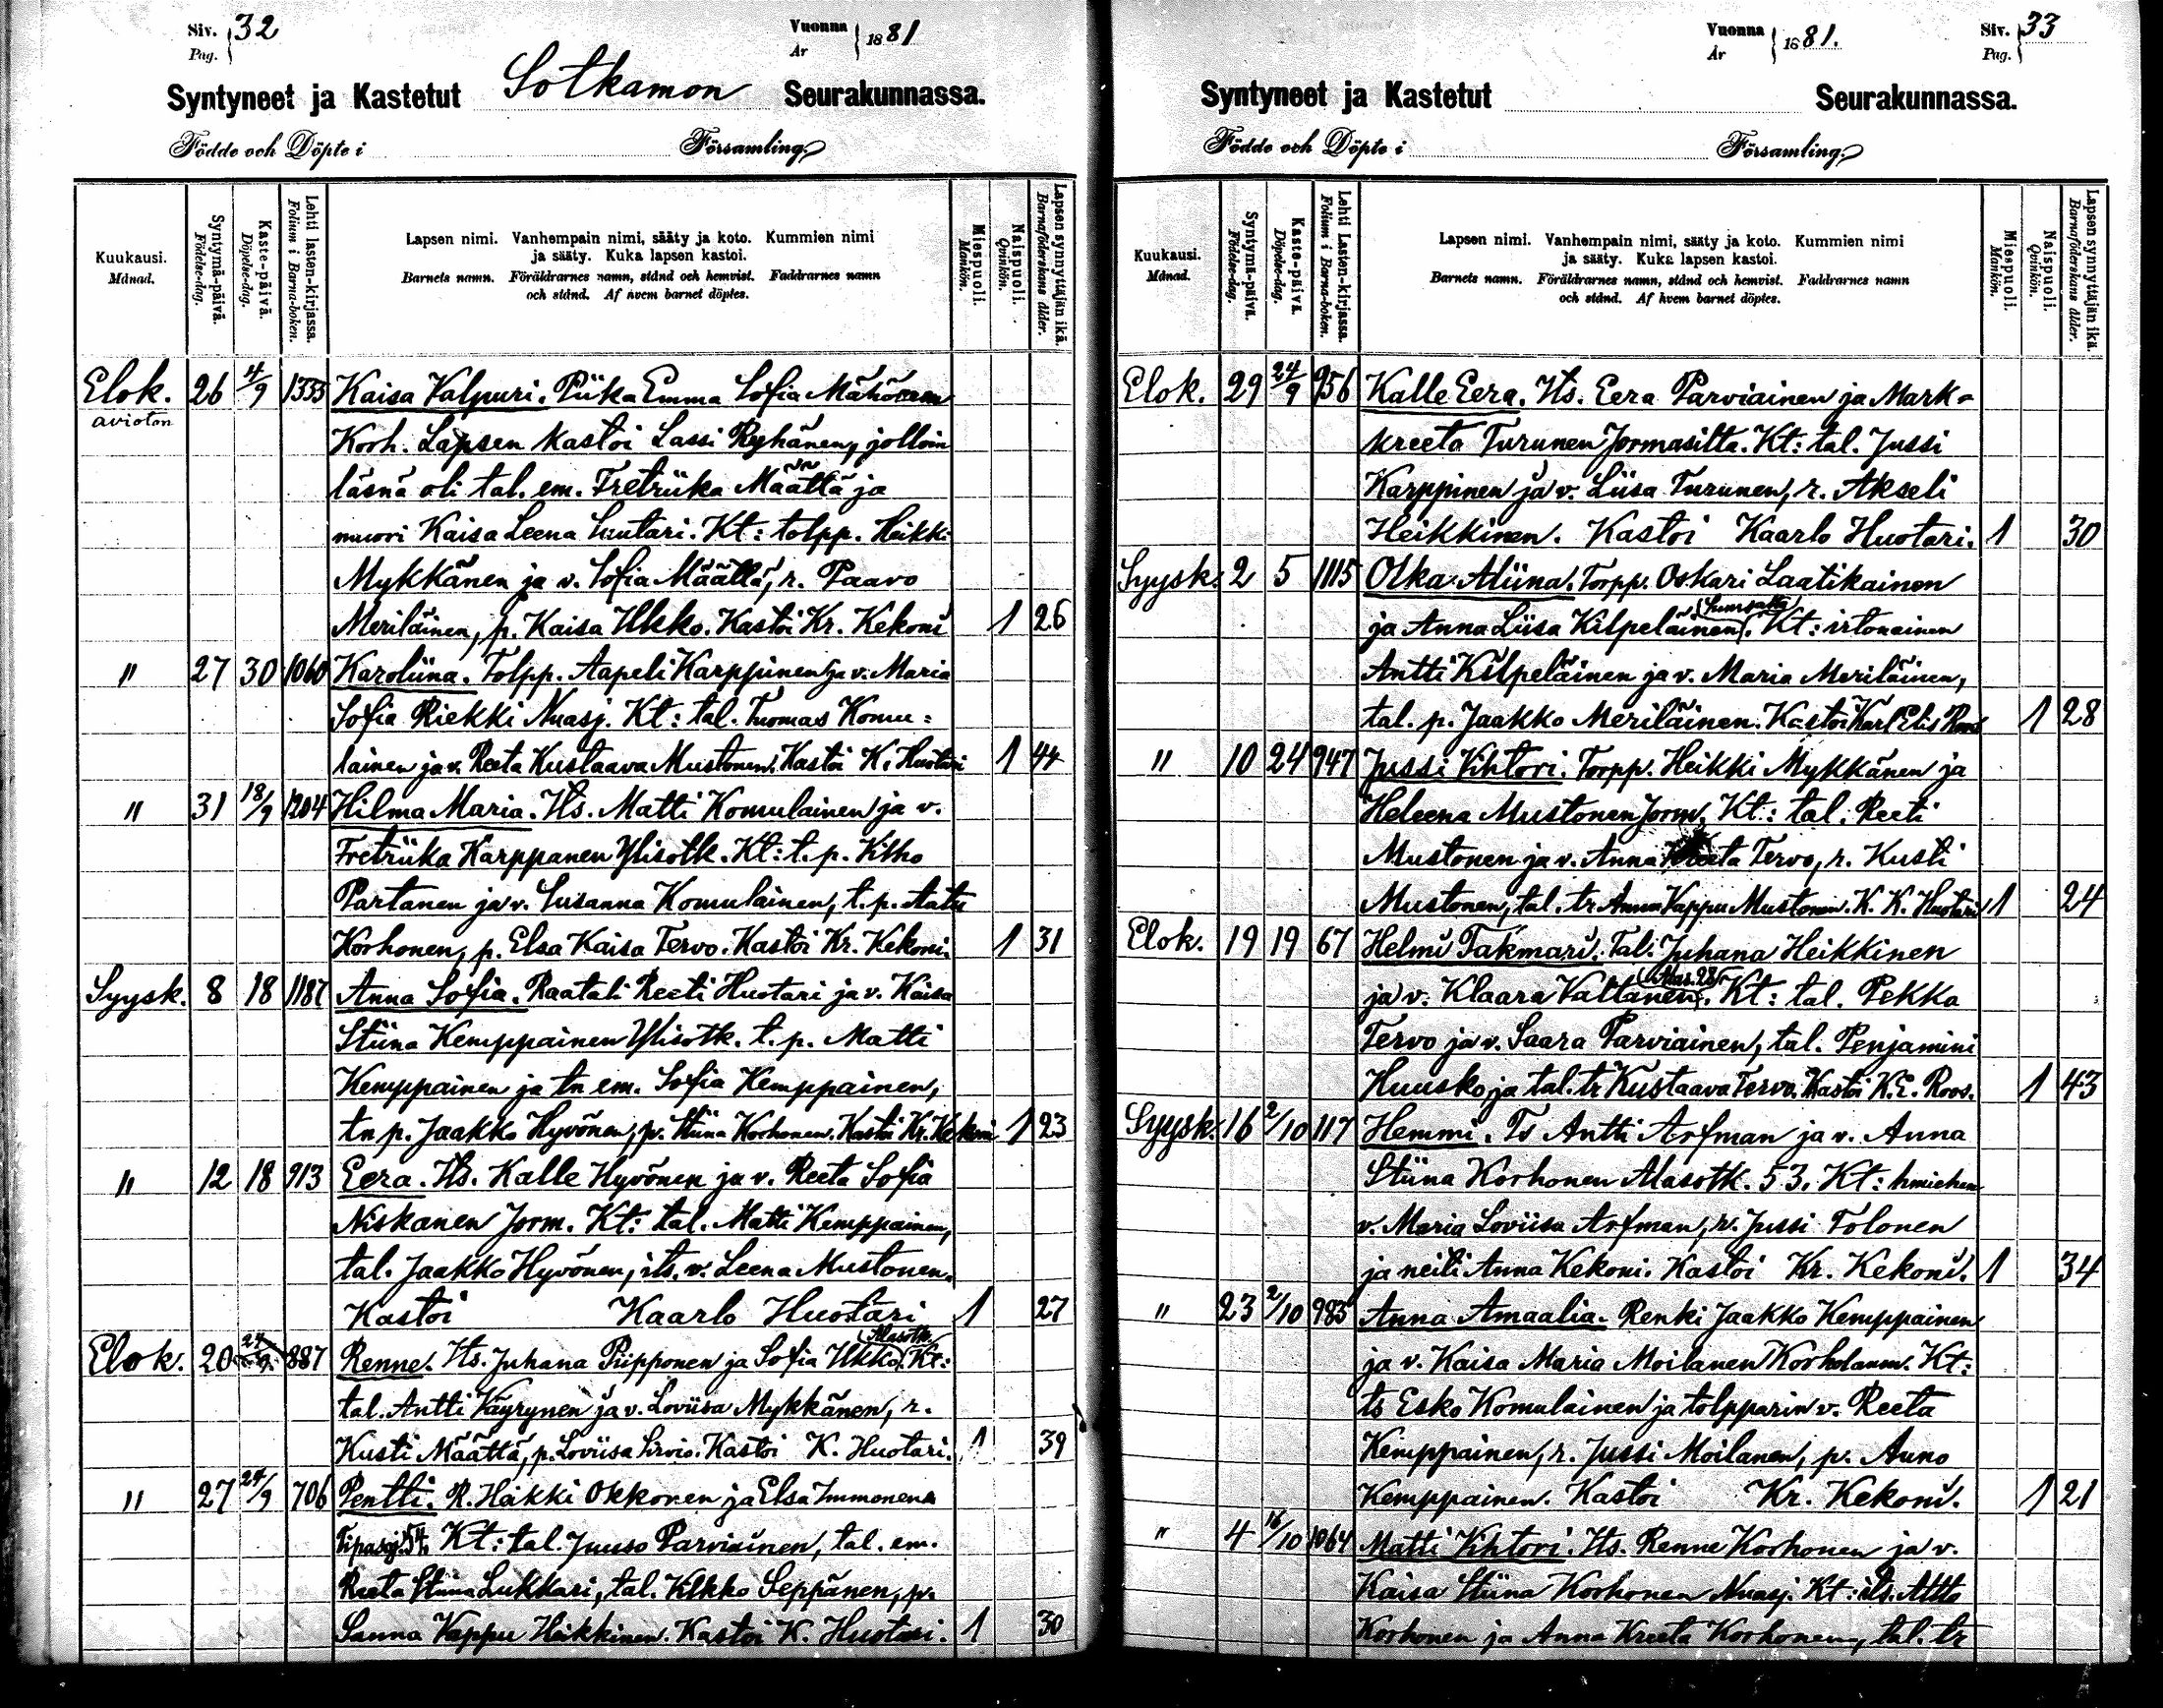 Siv. 32
Pag.
Vuonna 1881
År
Syntyneet ja Kastetut Sotkamon Seurakunnassa.
Födde och Döpte i Församling.
Kuukausi. Månad.
Syntymä-päivä. Födelse-dag.
Kaste-päivä. Döpelse-dag.
Lehti lasten-kirjassa. Folium i Barna-boken.
Lapsen nimi. Vanhempain nimi, sääty ja koto. Kummien nimi
ja sääty. Kuka lapsen kastoi.
Barnets namn. Föräldrarnes namn, stånd och hemvist. Faddrarnes namn
och stånd. Af hvem barnet döptes.
Miespuoli. Mankön.
Naispuoli. Qvinkön.
Lapsen synnyttäjän ikä. Barnaföderskans ålder.
Elok. 26 4/9 1335 Kaisa Valpuri. Piika Emma Sofia
avioton Korh. Lapsen kastoi Lassi Ryhänen, jolloin
läsnä oli tal. em. Fretriika Määttä ja
muori Kaisa Leena Huotari. Kt: tolpp. Heikki
Mykkänen ja v. Sofia Määttä, r. Paavo
Meriläinen, p. Kaisa Ukko. Kastoi Kr. Kekoni 1 26
" 27 30 1060 Karoliina. Tolpp. Aapeli Karppinen ja v. Maria
Sofia Riekki Nuasj. Kt: tal. Tuomas Komu=
lainen ja v. Reeta Kustaava Mustonen. Kastoi K. Huotari 1 44
" 31 18/9 1204 Hilma Maria. Its. Matti Komulainen ja v.
Fretriika Karppanen Ylisotk. Kt: t. p. Kilho
Partanen ja v. Susanna Komulainen, t. p. Aatu
Korhonen, p. Elsa Kaisa Tervo. Kastoi Kr. Kekoni. 1 31
Syysk. 8 18 1187 Anna Sofia. Raatali Reeti Huotari ja v. Kaisa
Stiina Kemppainen Ylisotk. t. p. Matti
Kemppainen ja tn em. Sofia Kemppainen,
tn p. Jaakko Hyvönen, p. Stiina Korhonen. Kastoi Kr. Kekoni 1 23
" 12 18 913 Eera. Its. Kalle Hyvönen ja v. Reeta Sofia
Niskanen Jorm. Kt: tal. Matti Kemppainen,
tal. Jaakko Hyvönen, its. v. Leena Mustonen.
Kastoi Kaarlo Huotari 1 27
Elok. 20 24/9 887 Renne. Its. Juhana Piipponen ja Sofia Ukko (Alasotk.). Kt:
tal. Antti Väyrynen ja v. Loviisa Mykkänen, r.
Kusti Määttä, p. Loviisa Sirvio. Kastoi K. Huotari. 1 39
" 27 24/9 706 Pentti. R. Heikki Okkonen ja Elsa Immonen
Tipasoj. 54. Kt: tal. Juuso Parviainen, tal. em.
Reeta Stiina Lukkari, tal. Ulkko Seppänen, p.
Sanna Vappu Heikkinen. Kastoi K. Huotari. 1 30
Vuonna 1881.
År
Siv. 33
Pag.
Syntyneet ja Kastetut Seurakunnassa.
Födde och Döpte i Församling.
Kuukausi. Månad.
Syntymä-päivä. Födelse-dag.
Kaste-päivä. Döpelse-dag.
Lehti Lasten-kirjassa. Folium i Barna-boken.
Lapsen nimi. Vanhempain nimi, sääty ja koto. Kummien nimi
ja sääty. Kuka lapsen kastoi.
Barnets namn. Föräldrarnes namn, stånd och hemvist. Faddrarnes namn
och stånd. Af hvem barnet döptes.
Miespuoli. Mankön.
Naispuoli. Qvinkön.
Lapsen synnyttäjän ikä. Barnaföderskans ålder.
Elok. 29 24/9 956 Kalle Eera. Its. Eera Parviainen ja Mark-
kreeta Turunen Jormasilta. Kt: tal. Jussi
Karppinen ja v. Liisa Turunen, r. Akseli
Heikkinen. Kastoi Kaarlo Huotari. 1 30
Syysk. 2 5 1115 Olka Aliina. Torpp. Oskari Laatikainen
ja Anna Liisa Kilpeläinen. Kt: irtonainen
Antti Kilpeläinen ja v. Maria Meriläinen,
tal. p. Jaakko Meriläinen. Kastoi Karl Elis Roos 1 28
" 10 24 947 Jussi Vihtori. Torpp. Heikki Mykkänen ja
Heleena Mustonen Jorm. Kt: tal. Reeti
Mustonen ja v. Anna Kreeta Tervo, r. Kusti
Mustonen, tal. tr Anna Vappu Mustonen. K. K. Huotari 1 24
Elok. 19 19 67 Helmi Takmari. Tal. Juhana Heikkinen
ja v. Klaara Valtanen (Alas. 28). Kt: tal. Pekka
Tervo ja v. Saara Parviainen, tal. Penjamini
Huusko ja tal. tr Kustaava Tervo. Kastoi K. E. Roos. 1 43
Syysk. 16 2/10 117 Hemmi. Ts Antti Arfman ja v. Anna
Stiina Korhonen Alasotk. 53. Kt: hmiehen
v. Maria Loviisa Arfman, r. Jussi Tolonen
ja neiti Anna Kekoni. Kastoi Kr. Kekoni. 1 34
" 23 2/10 983 Anna Amaalia. Renki Jaakko Kemppainen
ja v. Kaisa Maria Moilanen Korholanm. Kt:
ts Esko Komulainen ja tolpparin v. Reeta
Kemppainen, r. Jussi Moilanen, p. Anno
Kemppainen. Kastoi Kr. Kekoni. 1 21
" 4 16/10 1064 Matti Vihtori. Its. Renne Korhonen ja v.
Kaisa Stiina Korhonen Nuasj. Kt: its. Atto
Korhonen ja Anna Kreeta Korhonen, tal. tr